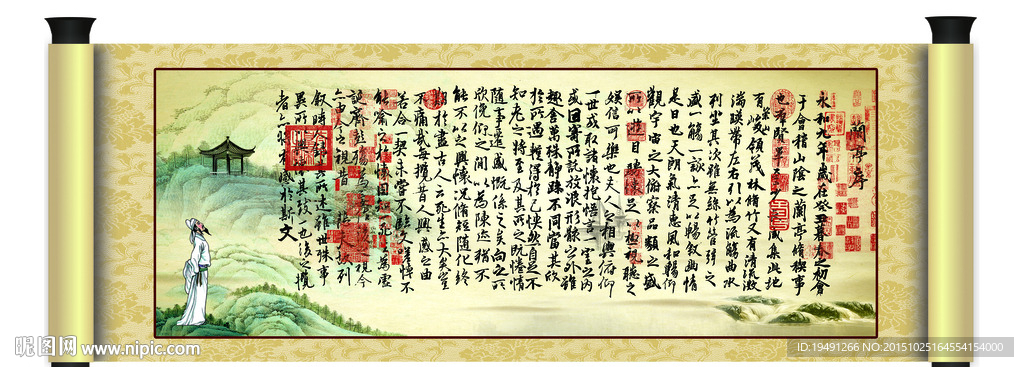 蘭亭序
永和九年歲在癸丑暮春之初會
于會稽山陰之蘭亭脩禊事
也羣賢畢至少長咸集此地
有崇山峻領茂林脩竹又有清流激
湍暎帶左右引以為流觴曲水
列坐其次雖無絲竹管弦之
盛一觴一詠亦足以暢敘幽情
是日也天朗氣清惠風和暢仰
觀宇宙之大俯察品類之盛
所以遊目騁懷足以極視聽之
娛信可樂也夫人之相與俯仰
一世或取諸懷抱悟言一室之內
或因寄所託放浪形骸之外雖
趣舍萬殊靜躁不同當其欣
於所遇暫得於己快然自足不
知老之將至及其所之既惓情
隨事遷感慨係之矣向之所
欣俛仰之間以為陳迹猶不
能不以之興懷況脩短隨化終
期於盡古人云死生亦大矣豈
不痛哉每攬昔人興感之由
若合一契未嘗不臨文嗟悼不
能喻之於懷固知一死生為虛
誕齊彭殤為妄作後之視今
亦由今之視昔悲夫故列
敘時人錄其所述雖世殊事
異所以興懷其致一也後之攬
者亦將有感於斯文
昵图网 www.nipic.com
ID:19491266 NO:20151025164554154000